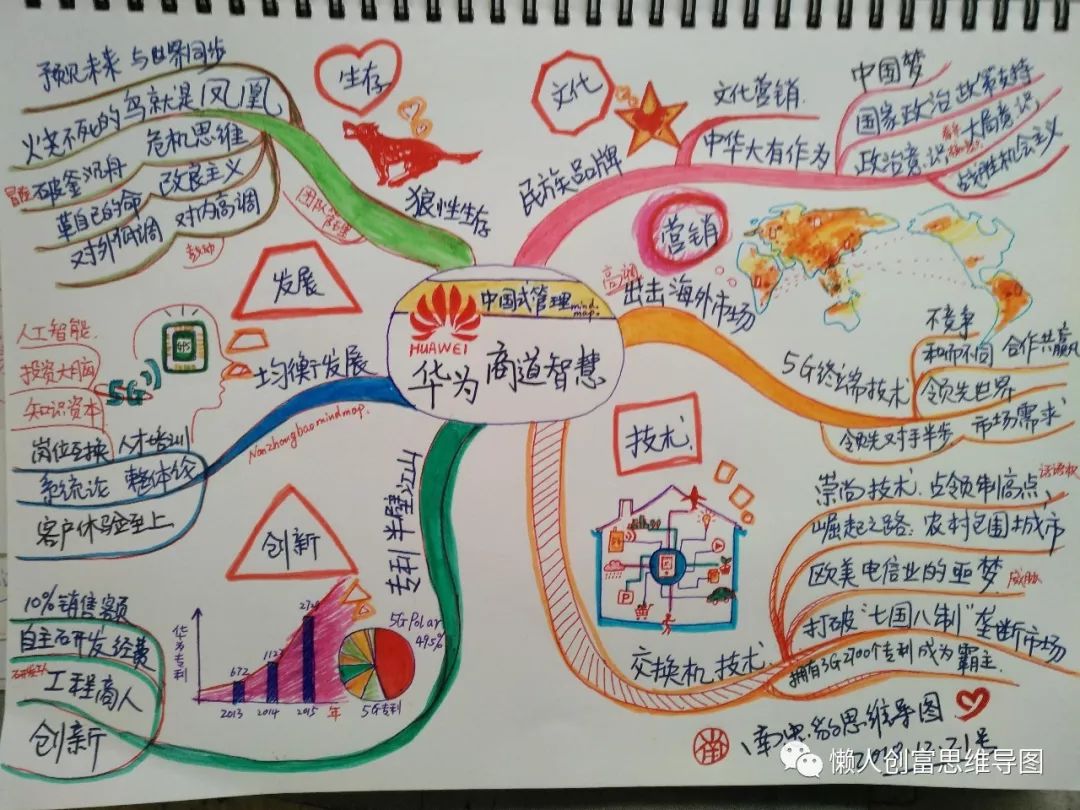 中国式管理 mind map.
HUAWEI
华为 商道智慧
文化
民族品牌
文化营销
中华大有作为
中国梦
国家政治政策支持
政治意识 大局意识
战胜机会主义
营销
高调
出击海外市场
5G终端技术
不竞争
和而不同 合作共赢
领先世界
领先对手半步 市场需求
技术
交换机技术
崇尚技术、占领制高点
话语权
崛起之路:农村包围城市
欧美电信业的噩梦
威胁
打破“七国八制”垄断市场
拥有3G2700个专利成为霸主.
P
创新
专利半壁江山
10%销售额
自主研发经费
工程商人
创新
华为专利
672
1127
2013 2014 2015 年
5G Polar
49.5%
5G专利
发展
均衡发展
Nanzhongbaomindmap.
人工智能.
投资大脑
知识资本
5G
岗位互换 人才培训
系统论 整体饮
客户体验至上
生存
狼性生存
团队管理
预见未来 与世界同步
火烧不死的鸟就是凤凰
危机思维
冒险
破釜沉舟 改良主义
革自己的命
对外低调 对内高调
鼓动
南
思维导图
懒人创富思维导图